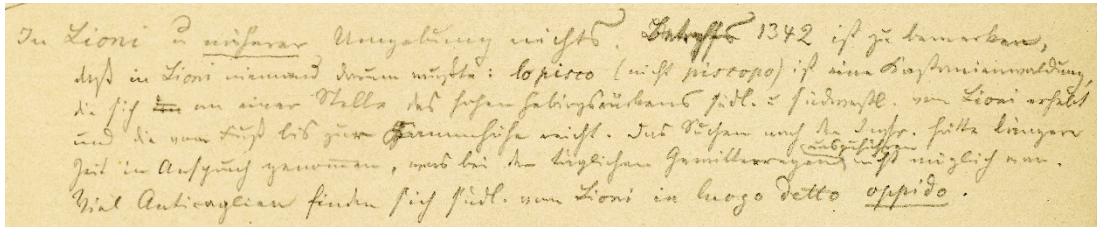 In Lioni u näherer Umgebung nichts. Betreffs 1342 ist zu bemerken,
daß in Lioni niemand darum wußte: lopisco (nicht piscopo) ist eine Kastanienwaldung,
die sich an einer Stelle des hohen Gebirgsrückens südl. u südwestl. von Lioni erhebt
und die vom Fuß bis zur Kammhöhe reicht. Das Suchen nach der Inschr. hätte längere
Zeit in Anspruch genommen, was bei den täglichen Gewitterregen auszuführen nicht möglich war.
Viel Anticaglien finden sich südl. von Lioni in luogo detto oppido.